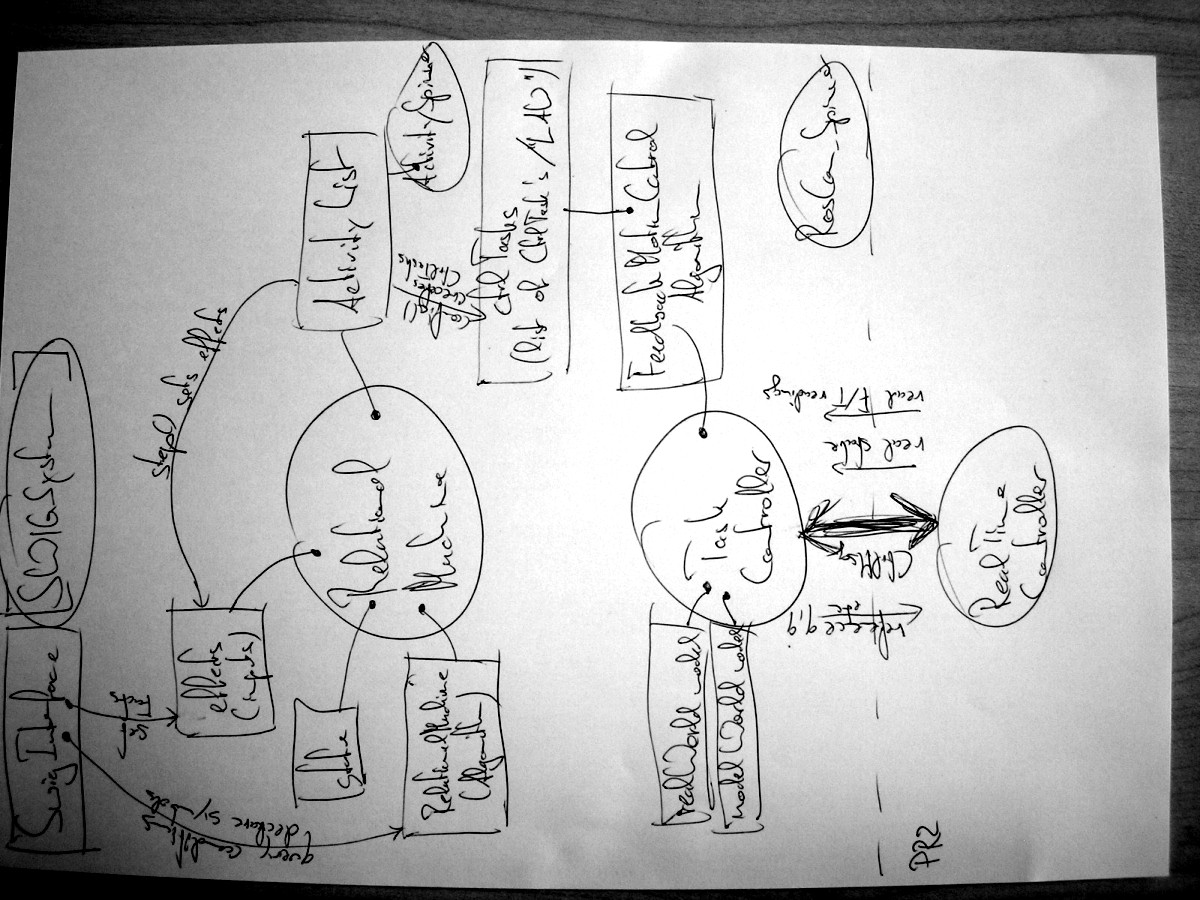 Swig Interface
[SWIGSystem]
set
facts
query conditions
declare symbols
step() sets effects
effects
(inputs)
state
Relational
Machine
Activity List
RelationalMachine
(Algorithm)
configs()
creates
CtrlTasks
ActivitySpinner
ctrlTasks
(list of CtrlTask's /"LAW")
FeedbackMotionControl
Algorithm
realWorld model
modelWorld model
Task
Controller
RosCom_Spinner
reference q,q̇
etc
CtrlMsg
real state
real F/T readings
PR2
RealTime
Controller